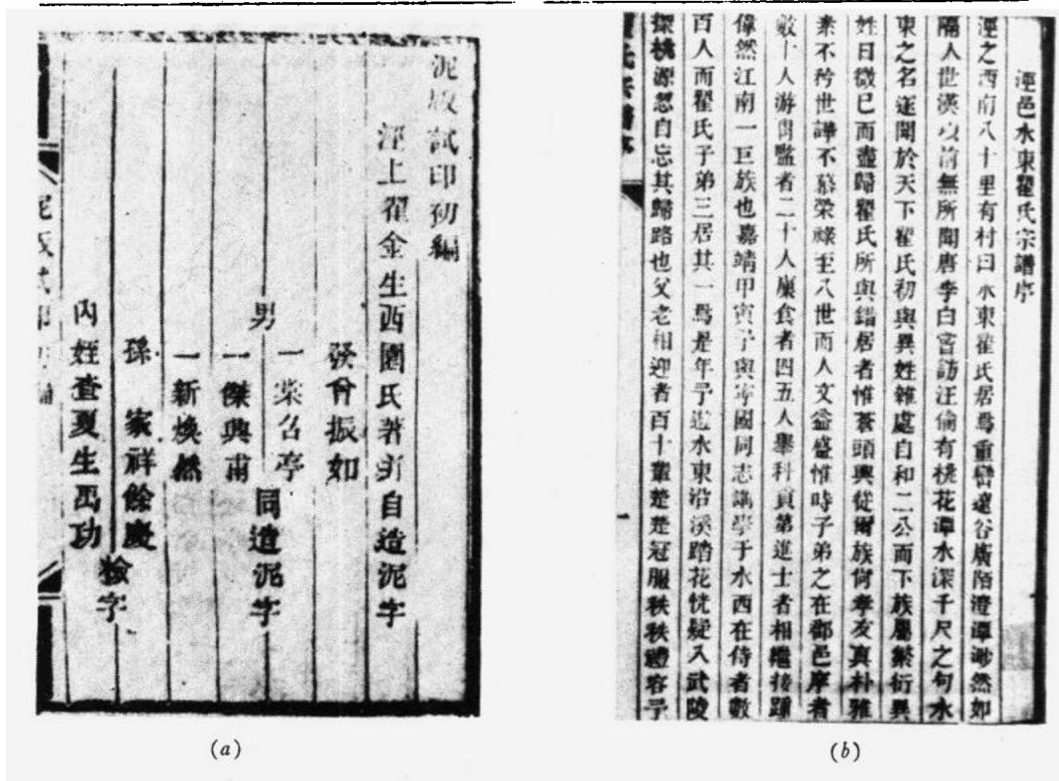 泥版試印初編
涇上翟金生西園氏著并自造泥字
發曾振如
男
一棠召亭
一傑興甫
一新煥然
同造泥字
孫 家祥餘慶
內姪查夏生禹功
檢字
泥版試印初編
(a)
涇邑水東翟氏宗譜序
涇之西南八十里有村曰水東翟氏居焉重巒邃谷廣陌澄潭渺然如
隔人世漢以前無所聞唐李白嘗訪汪倫有桃花潭水深千尺之句水
東之名遂聞於天下翟氏初與異姓雜處自和二公而下族屬繁衍異
姓日微已而盡歸翟氏所與錯居者惟蒼頭興從爾族尚孝友真朴雅
素不矜世譁不慕榮祿至八世而人文益盛惟時子弟之在郡邑庠者
數十人游胄監者二十人廩食者四五人舉科貢第進士者相繼接踵
偉然江南一巨族也嘉靖甲寅予與寧國同志講學于水西在侍者數
百人而翟氏子弟三居其一焉是年予造水東沿溪踏花恍疑入武陵
探桃源忽自忘其歸路也父老相迎者百十輩楚楚冠服秩秩禮容予
(b)